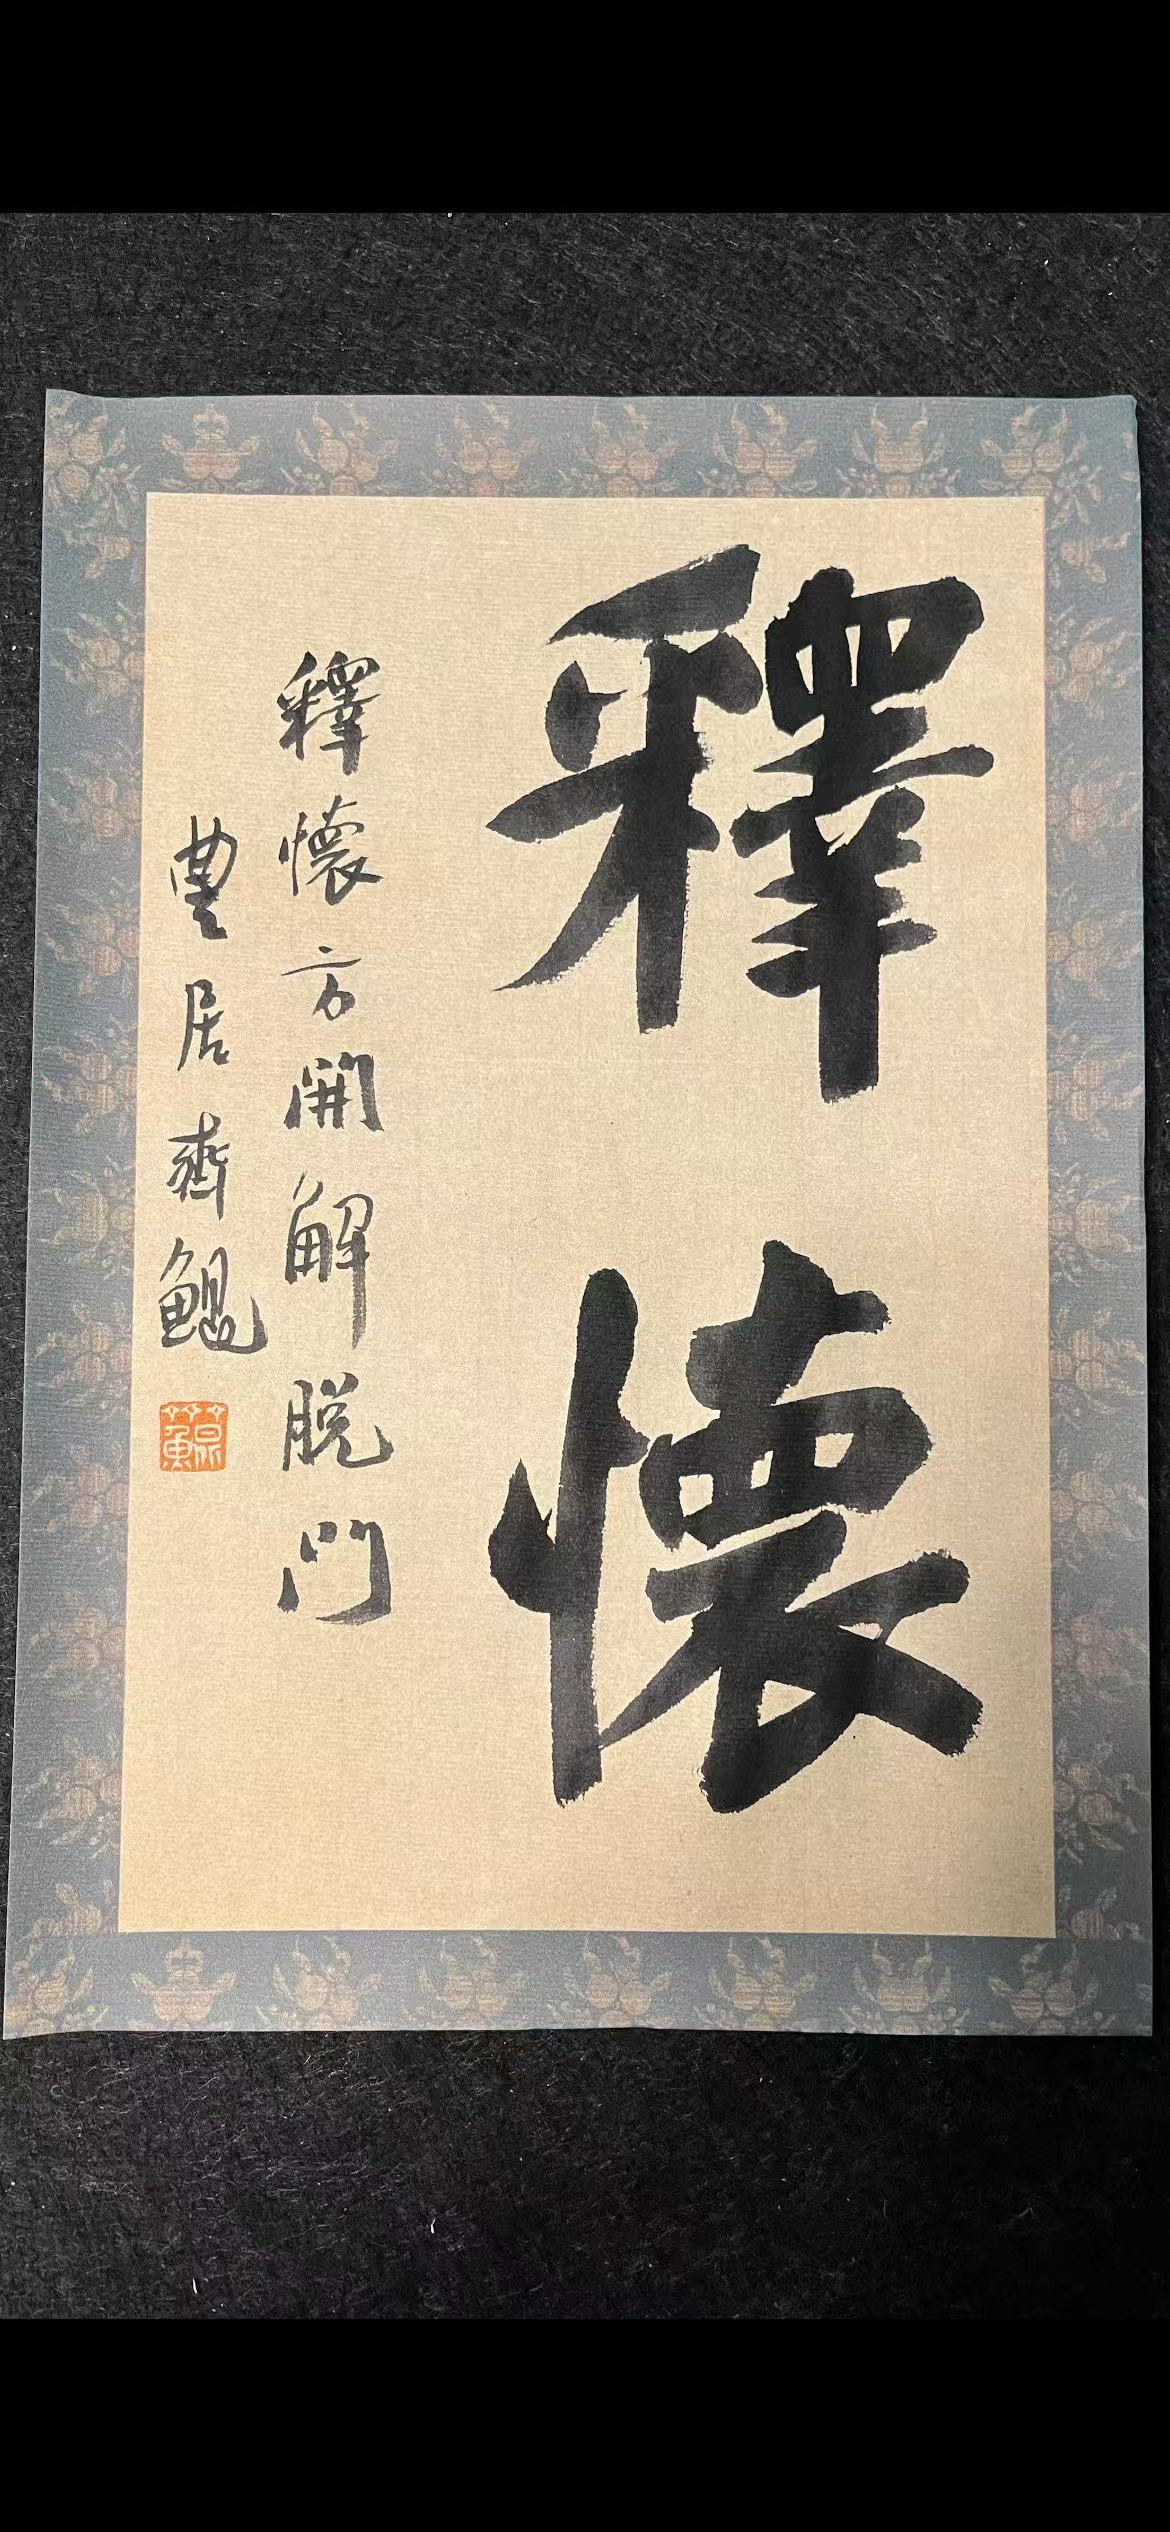 釋懷
釋懷方開解脫門
豐居齋鯤